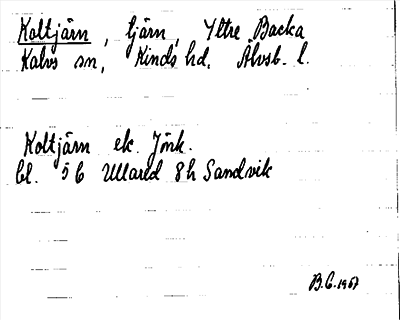 Koltjärn, tjärn, Yttre Backa
Kalvs sn, Kinds hd. Älvsb. l.
Koltjärn ek. Jönk.
bl. 56 Ullared 8h Sandvik
B.G. 1967